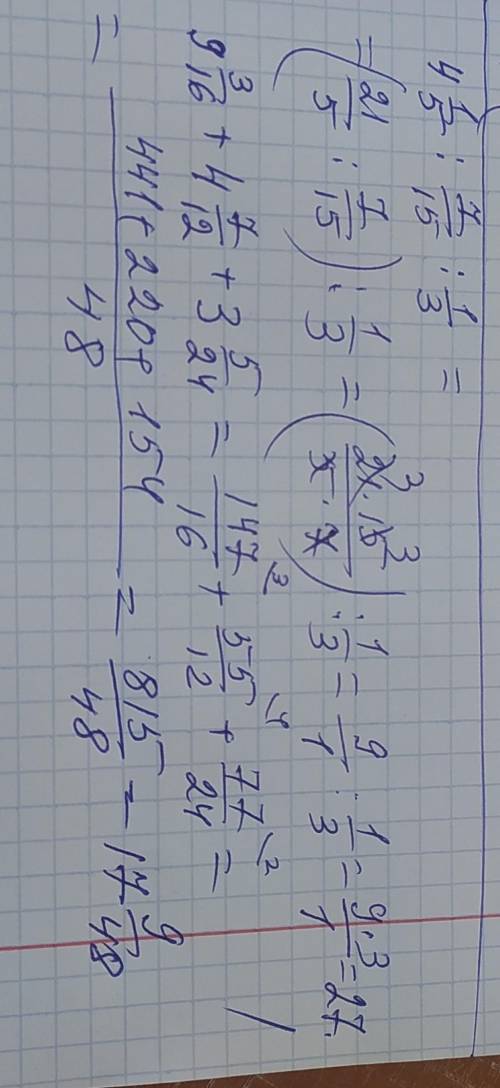 4 1/5 : 7/15 : 1/3 =
= (21/5 : 7/15) : 1/3 = (21 3 · 15 3 / 5 · 7) : 1/3 = 9/1 : 1/3 = 9·3/1 = 27.
9 3/16 + 4 7/12 + 3 5/24 = 147/16 \3 + 55/12 \4 + 77/24 \2 =
= 441+220+154/48 = 815/48 = 17 9/48